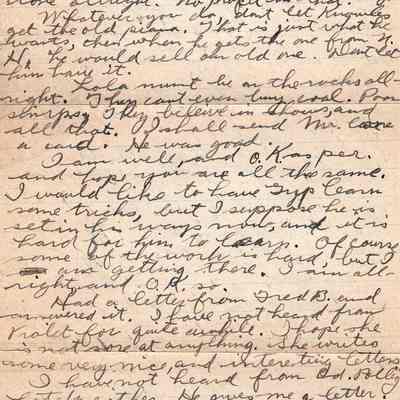 Whatever you do, dont let Knowles
get the old piano. That is just what he
wants, then when he gets the one from N.
H, he would sell our old one. Dont let
him have it.
Lola must be on the rocks all-
right. They cant even buy coal. Poor
shrips, They believe in show, and
all that. I shall send Mr.
a card. He was good.
I am well, and O. Kasper.
and hope you are all the same.
I would like to have Gyp learn
some tricks, but I suppose he is
set in his ways now, and it is
hard for him to learn. Of course
some of the work is hard, but I
am getting there. I am all-
right and O.K. so.
Had a letter from Fred B. and
answered it. I have not heard from
Violet for quite awhile. I hope she
is not sore at anything. She writes
some very nice, and interesting letters
I have not heard from Ed.
He owes me a letter.